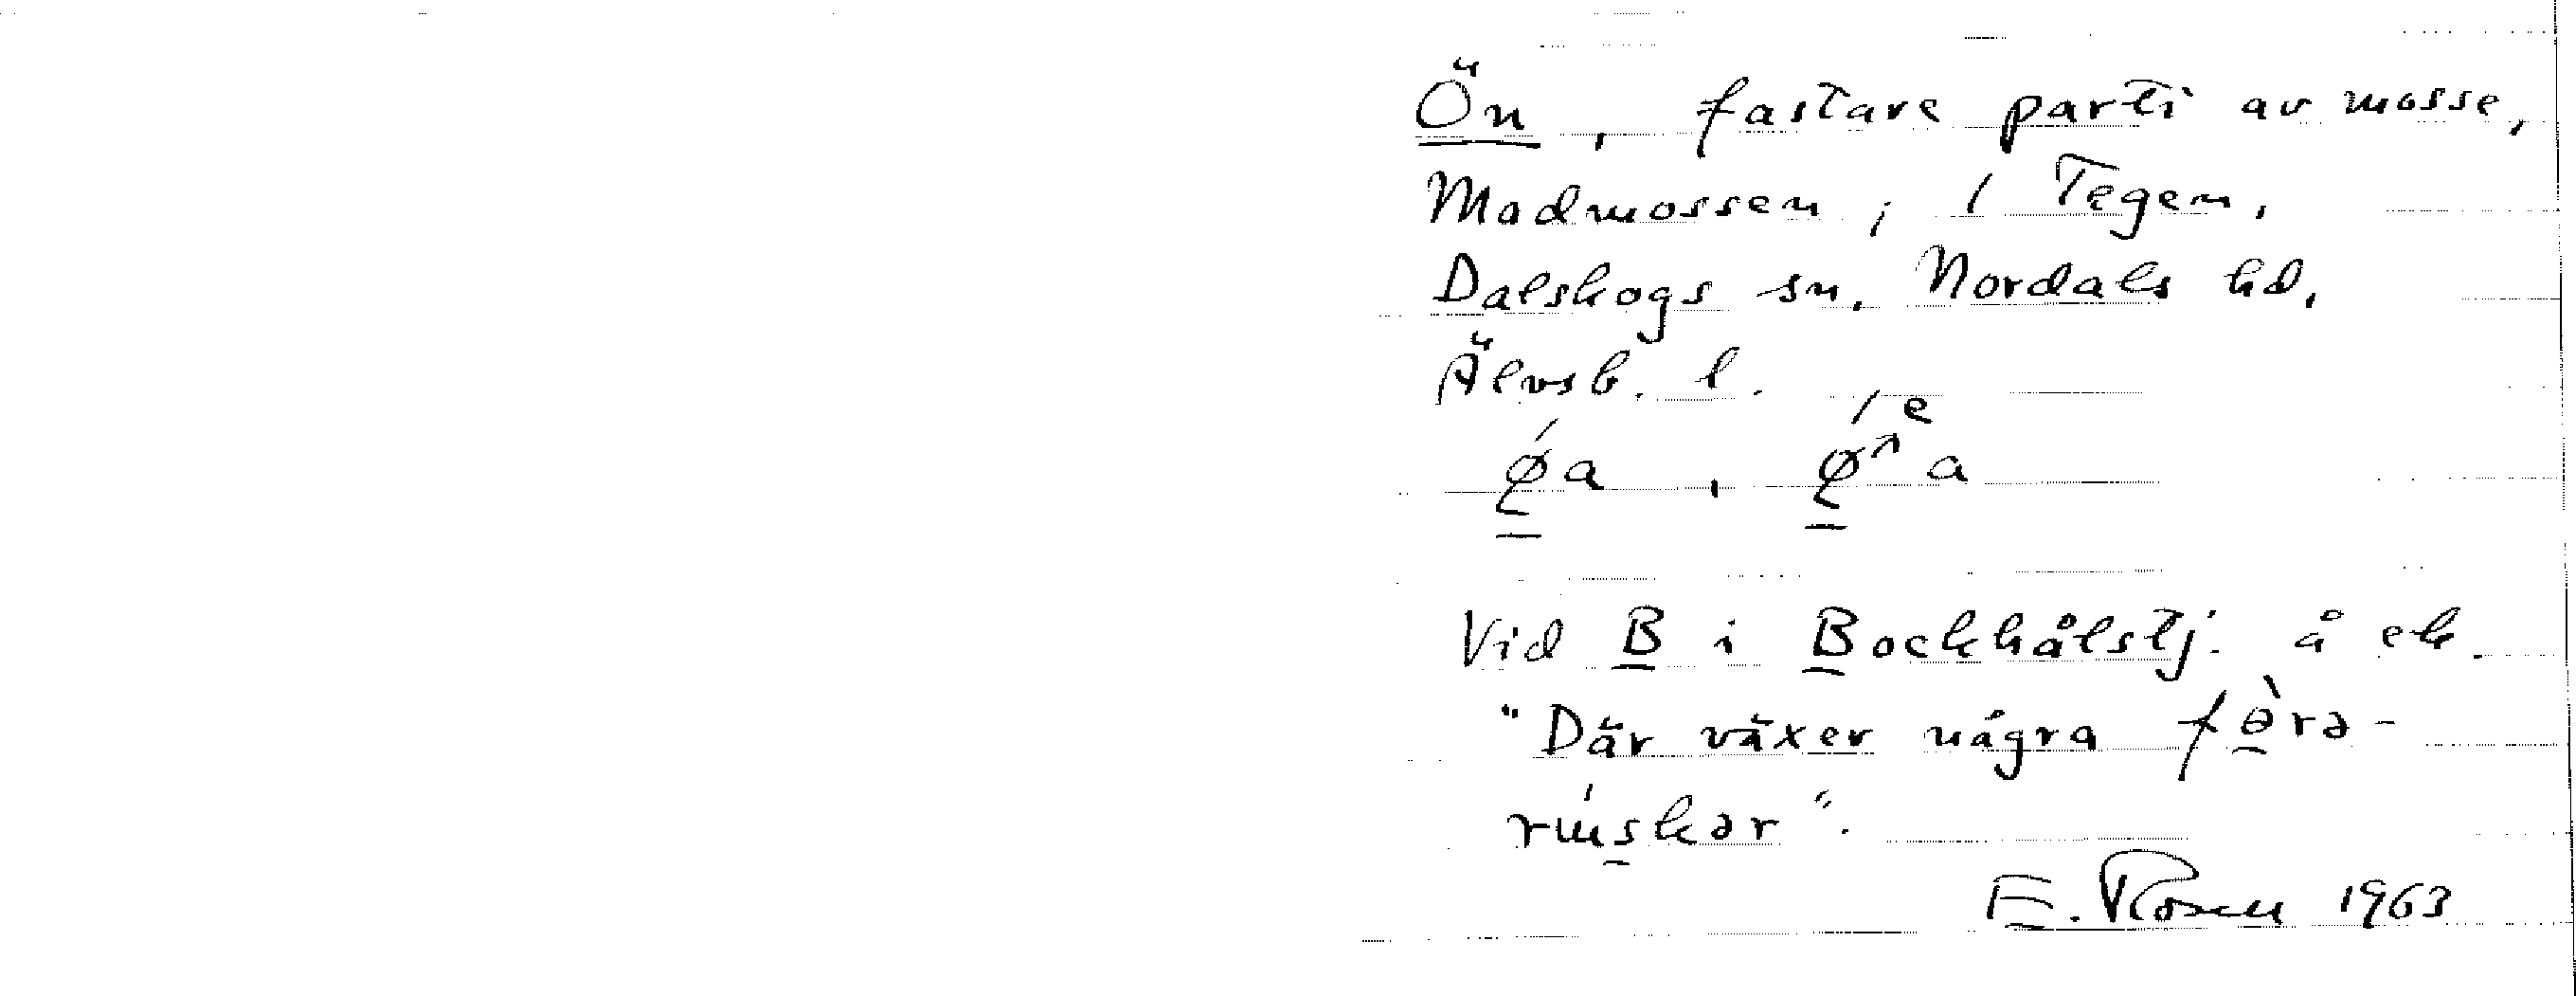 Ön, fastare parti av mosse,
Madmossen; 1 Tegen,
Dalskogs sn. Nordals hd,
Älvsb. l.
Vid B i Bockhålstj. å ek.
"Där växer några fərə-
ruskər".
E. Rosell 1963